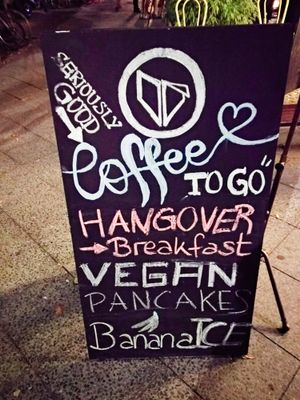 SERIOUSLY
GOOD
Coffee
TO GO"
HANGOVER
Breakfast
VEGAN
PANCAKES
Banana ICE